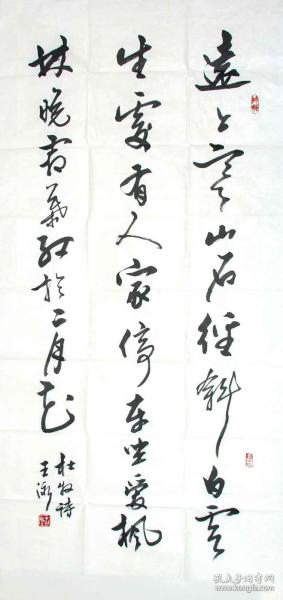 遠上寒山石徑斜白雲
生處有人家停車坐愛楓
林晚霜葉紅於二月花
杜牧詩
王漪
孔夫子旧书网